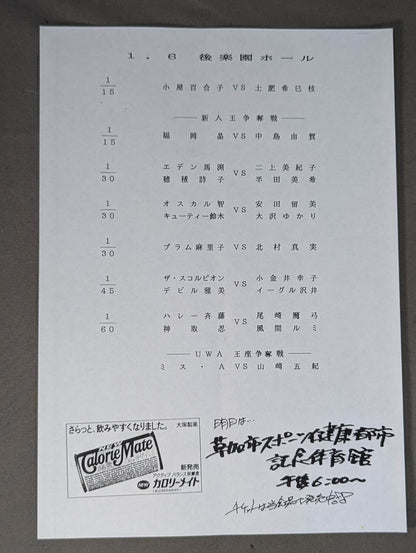 1．6 後楽園ホール
1/15 小屋百合子 VS 土肥希巳枝
新人王争奪戦
1/15 福岡晶 VS 中島由賀
1/30 エデン馬渕 VS 二上美紀子
穂積詩子 半田美希
1/30 オスカル智 VS 安田留美
キューティー鈴木 大沢ゆかり
1/30 プラム麻里子 VS 北村真実
1/45 ザ・スコルピオン VS 小金井幸子
デビル雅美 イーグル沢井
1/60 ハレー斉藤 VS 尾崎魔弓
神取忍 風間ルミ
UWA 王座争奪戦
ミス・A VS 山崎五紀
さらっと、飲みやすくなりました。 大塚製薬
NEW
CalorieMate
新発売
アクティブ・バランス栄養食
NEW カロリーメイト
明日は…
草加市スポーツ健康都市
記念体育館
午後6:00〜
チケットは当会場で発売中